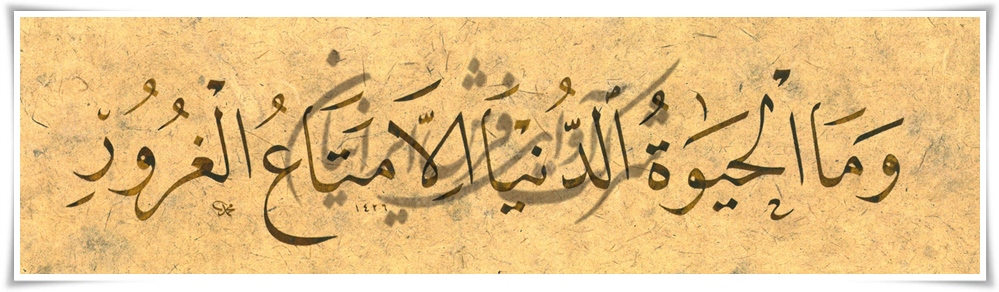 وَمَا الْحَيَوٰةُ الدُّنْيَا اِلَّا مَتَاعُ الْغُرُورِ
١٤٢٦